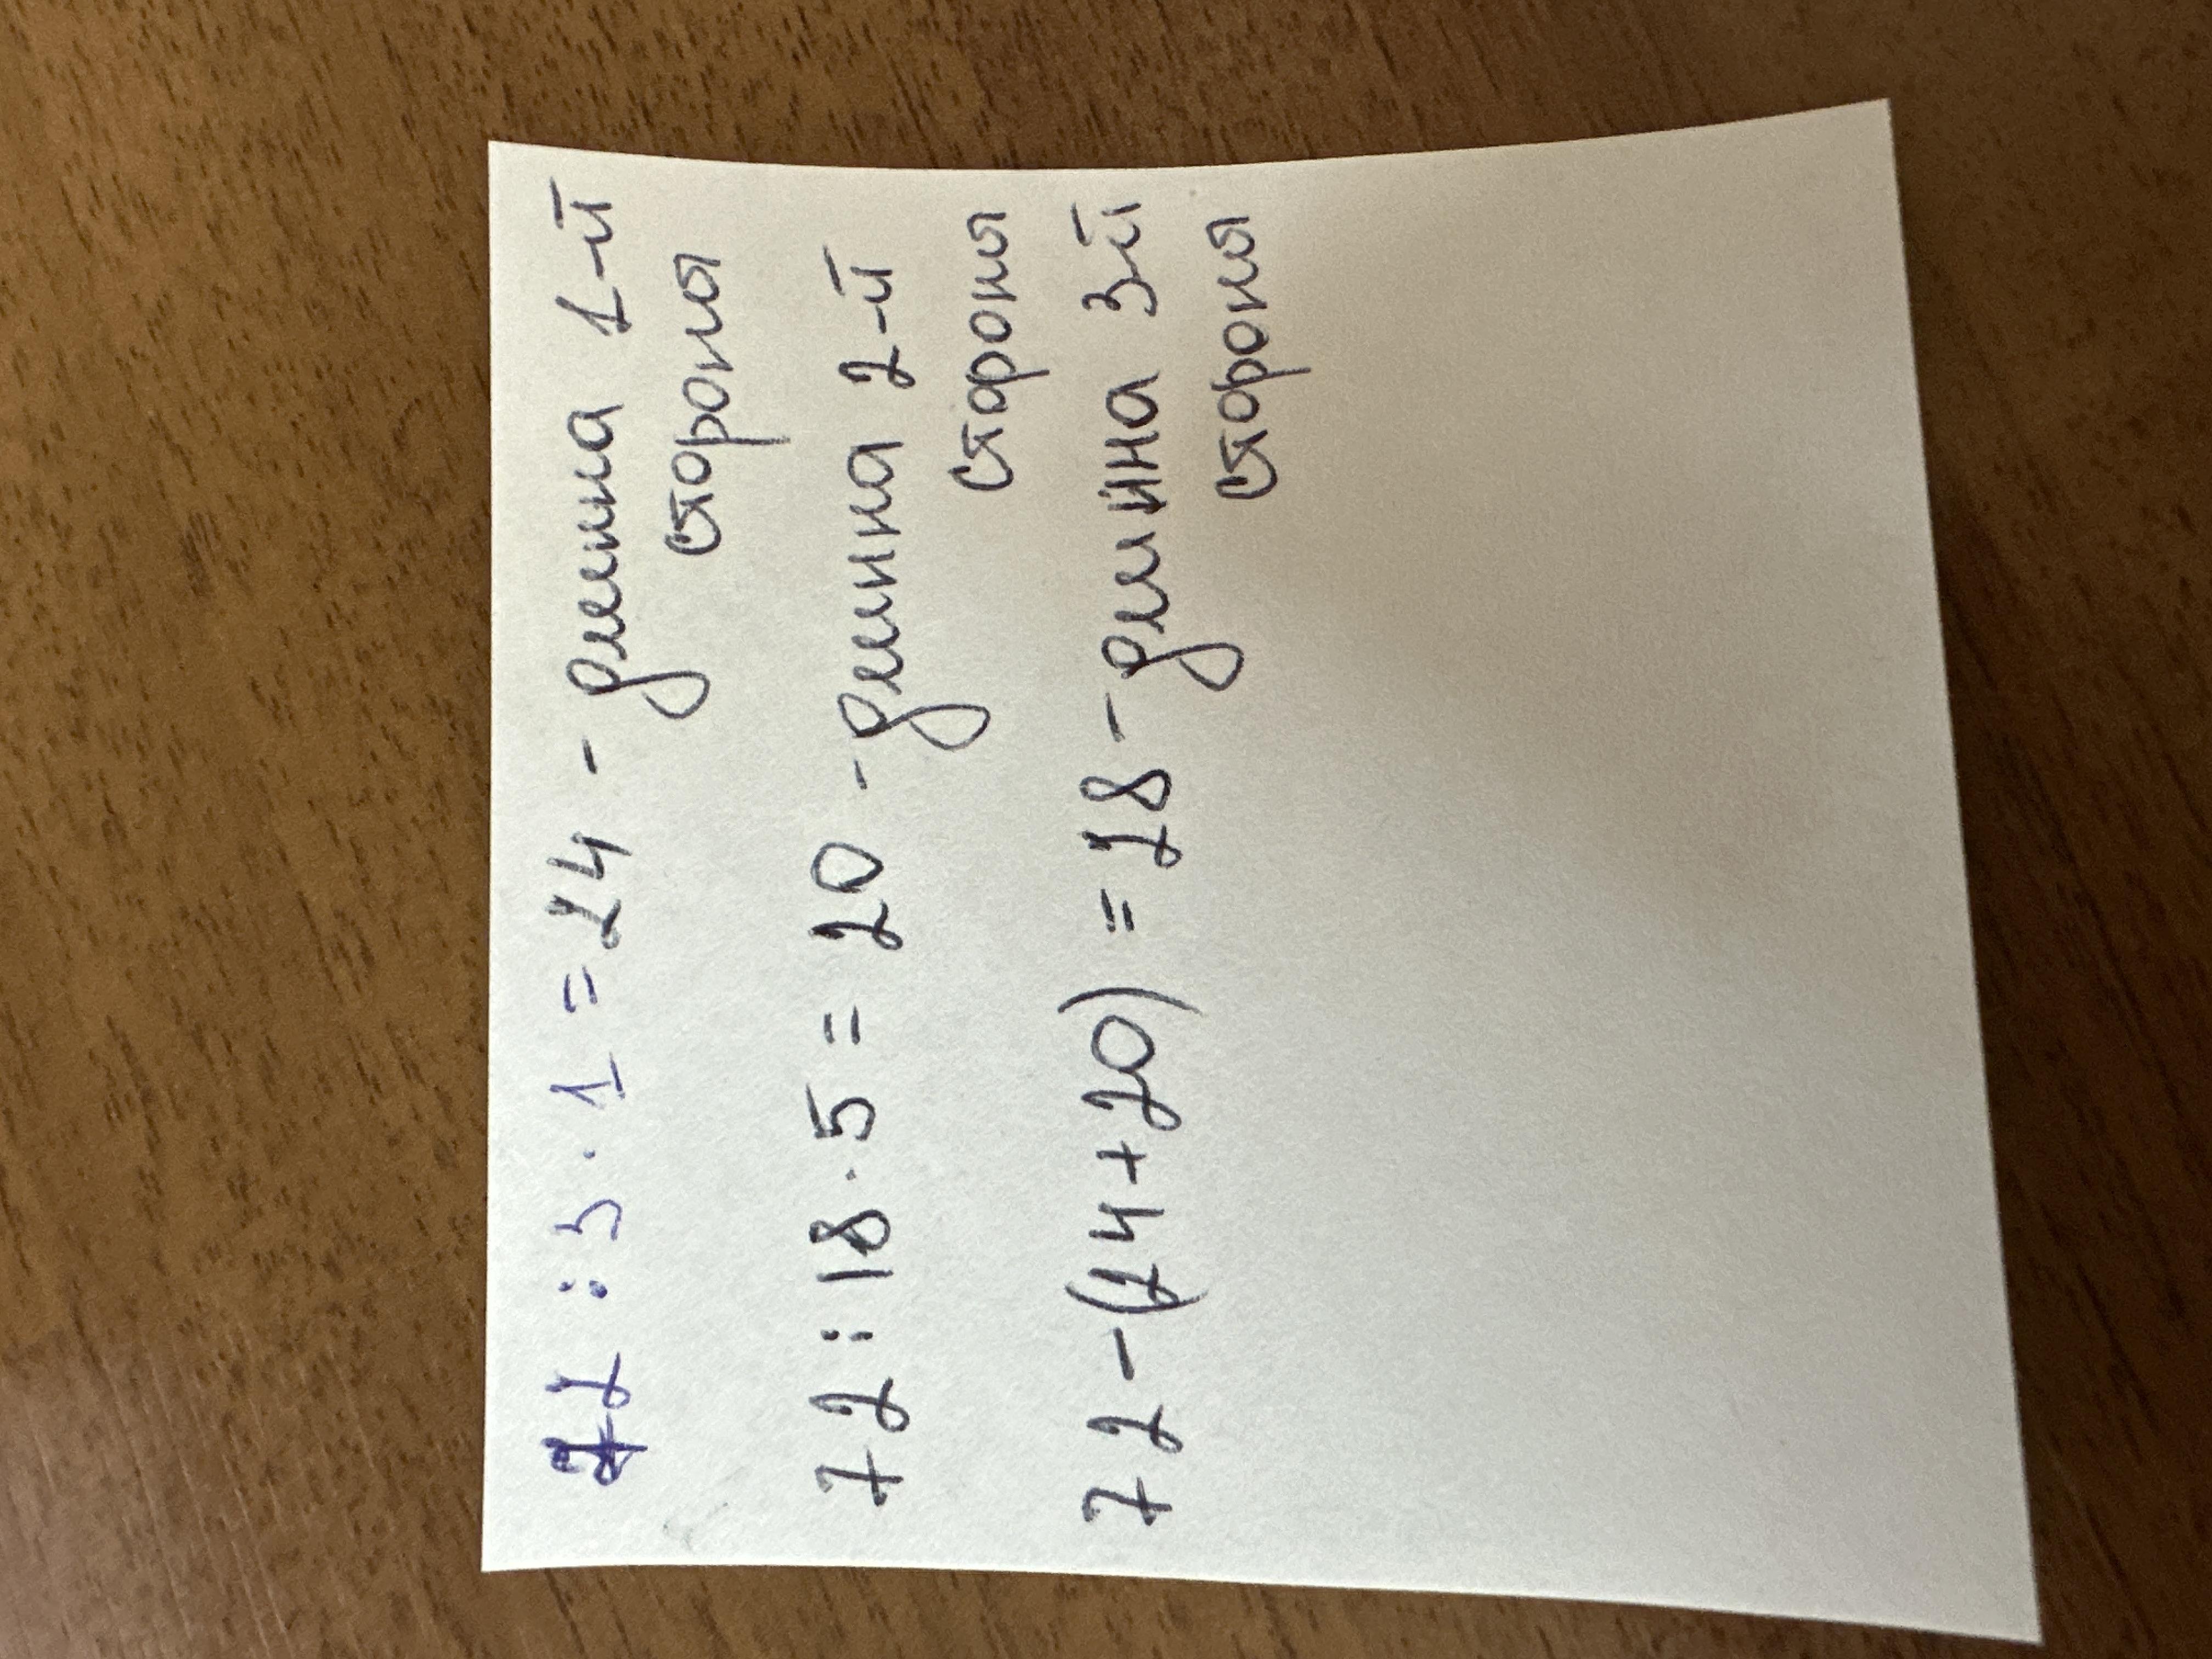 72 : 3 · 1 = 24 - длинна 1-й
стороны
72 : 18 · 5 = 20 - длинна 2-й
стороны
72 - (24 + 20) = 28 - длинна 3-й
стороны